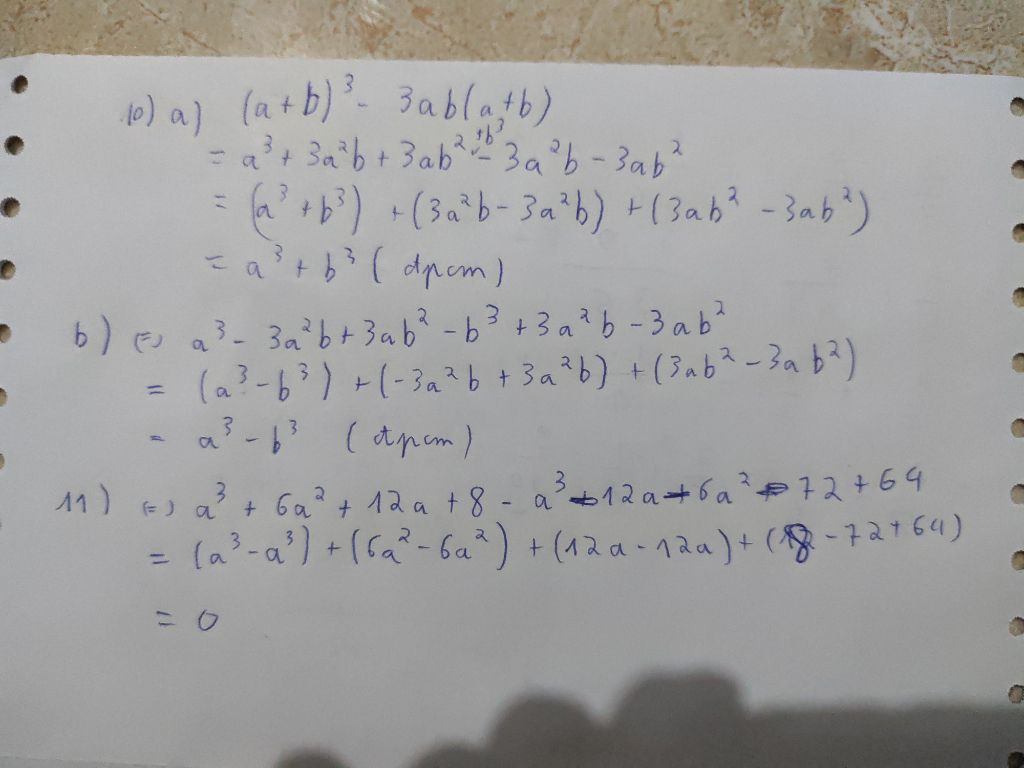 10) a) (a+b)³ - 3ab(a+b)
= a³ + 3a²b + 3ab² +b³ - 3a²b - 3ab²
= (a³ + b³) + (3a²b - 3a²b) + (3ab² - 3ab²)
= a³ + b³ (đpcm)
b) (=) a³ - 3a²b + 3ab² - b³ + 3a²b - 3ab²
= (a³ - b³) + (-3a²b + 3a²b) + (3ab² - 3ab²)
= a³ - b³ (đpcm)
11) (=) a³ + 6a² + 12a + 8 - a³ - 12a - 6a² - 72 + 64
= (a³ - a³) + (6a² - 6a²) + (12a - 12a) + (8 - 72 + 64)
= 0